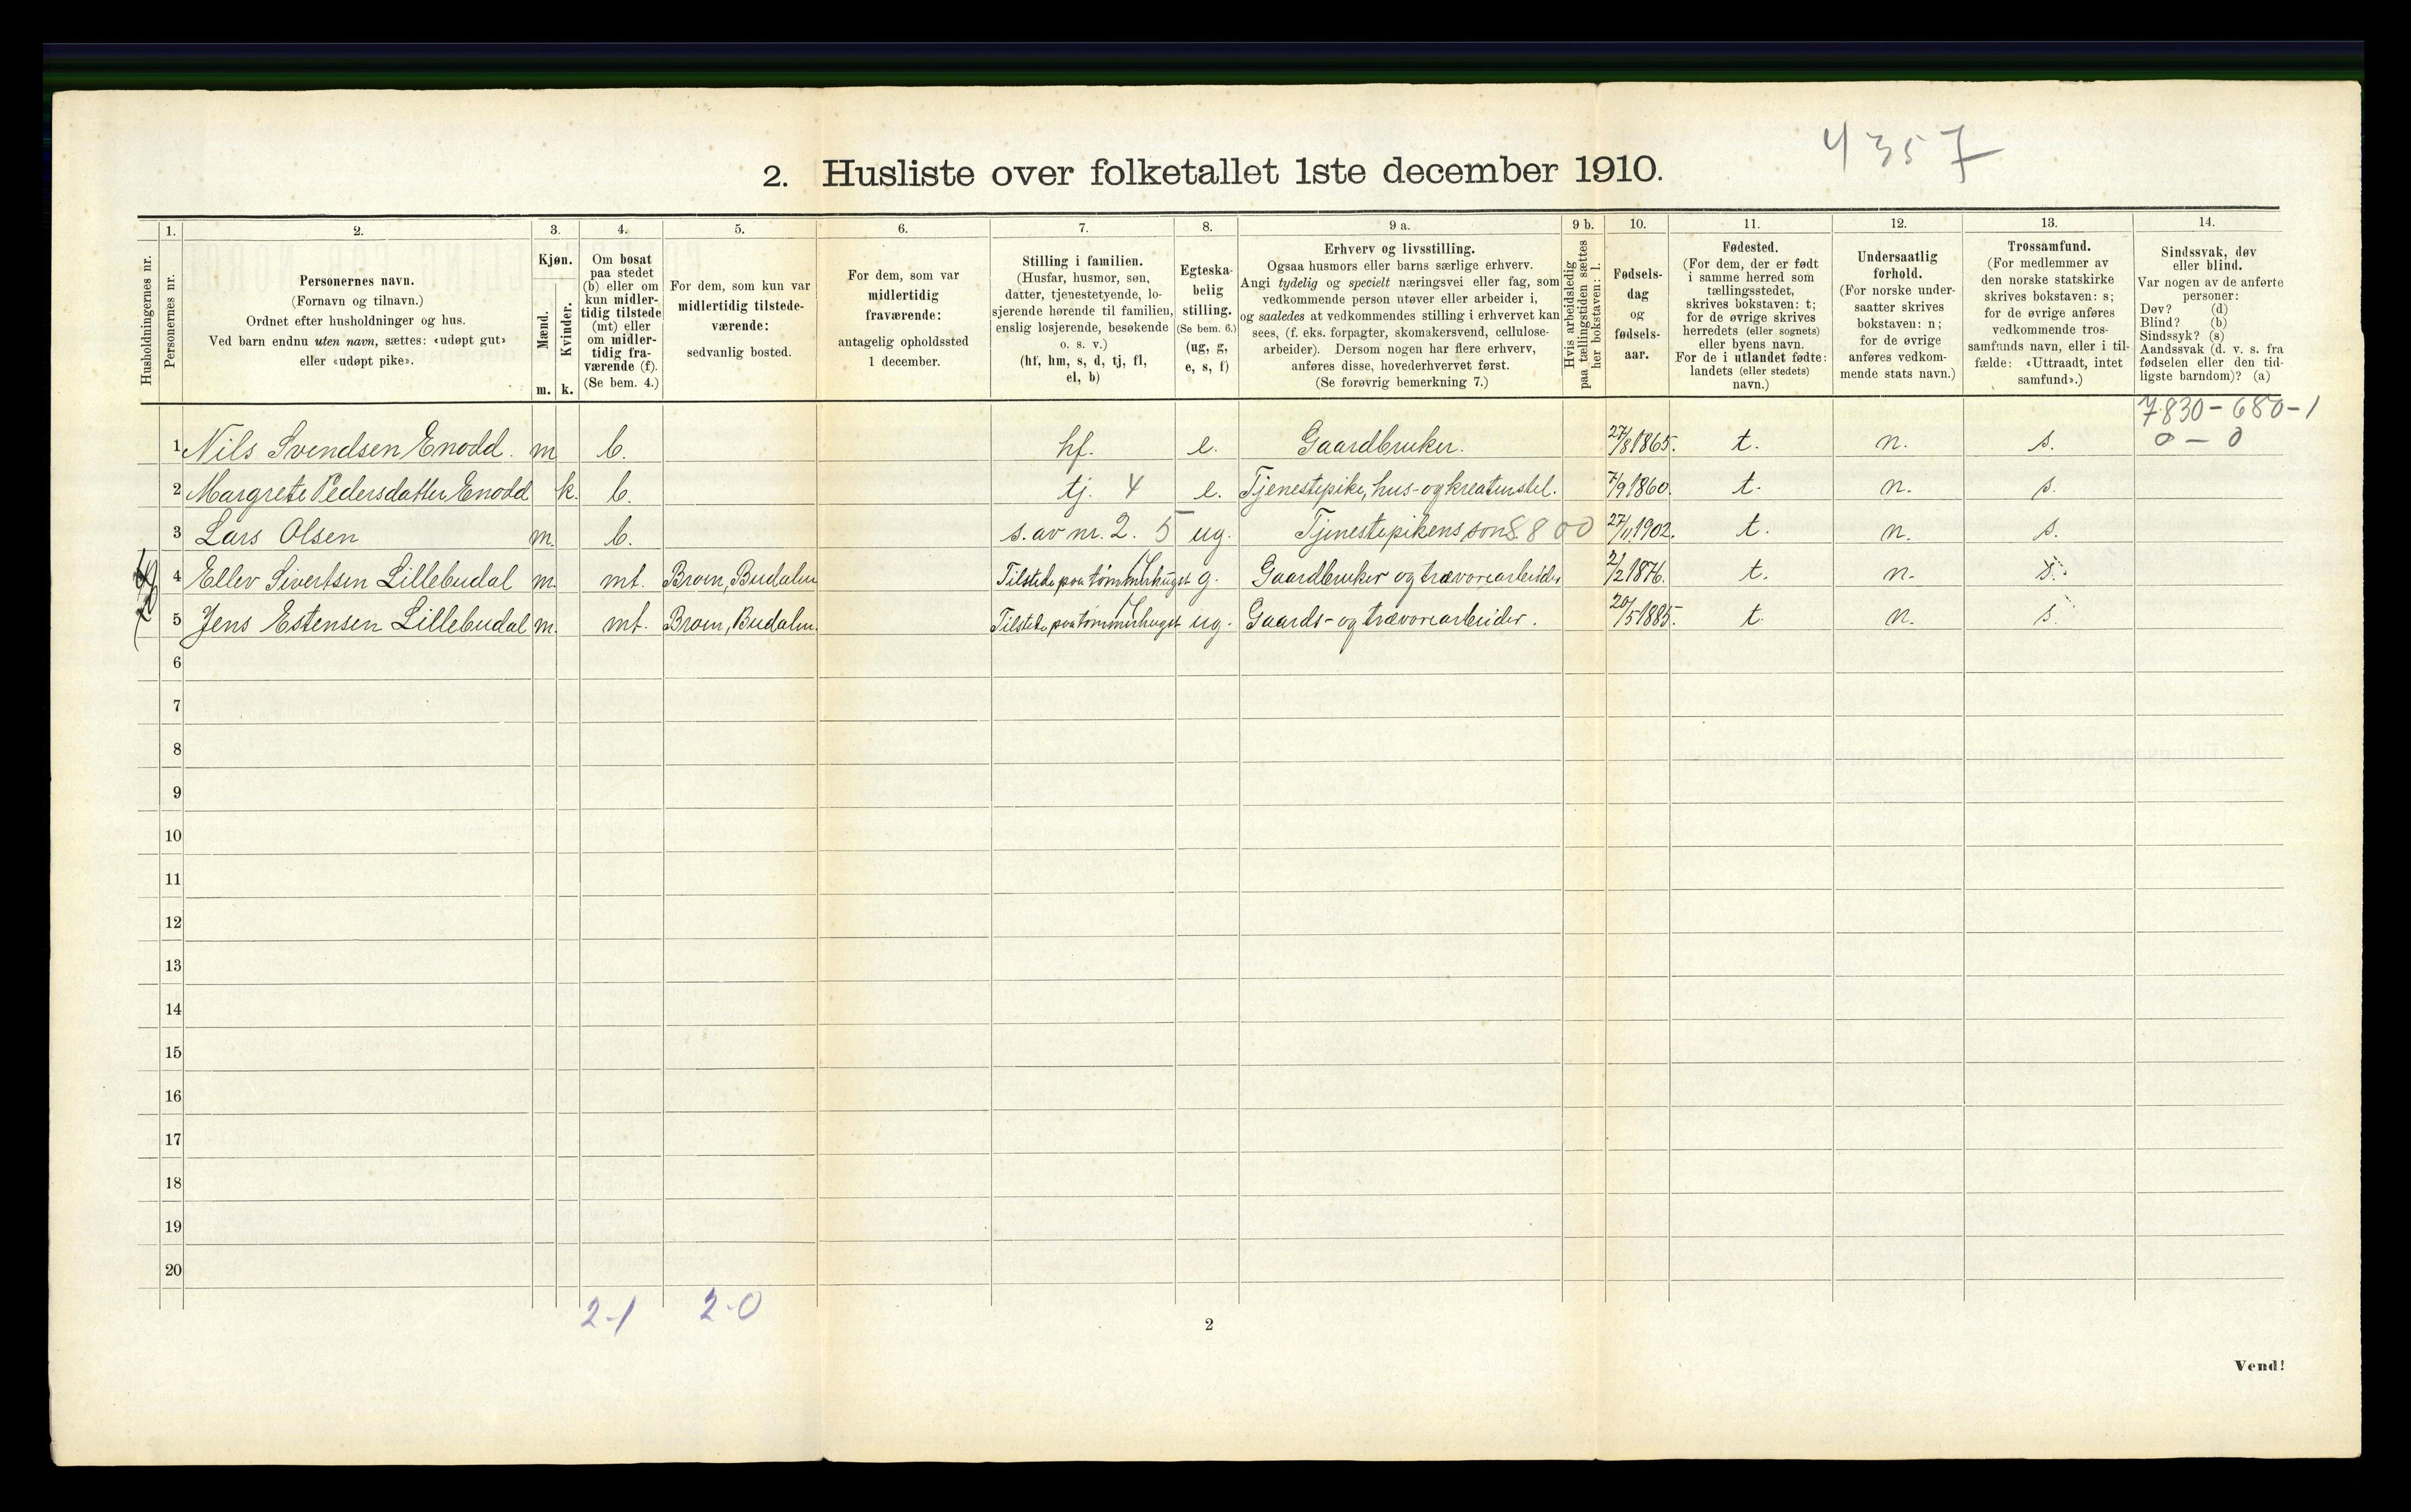 4357
2. Husliste over folketallet 1ste december 1910.
Husholdningernes nr.
1. Personernes nr.
2. Personernes navn.
(Fornavn og tilnavn.)
Ordnet efter husholdninger og hus.
Ved barn endnu uten navn, sættes: «udøpt gut»
eller «udøpt pike».
3. Kjøn.
Mænd. m.
Kvinder. k.
4. Om bosat
paa stedet
(b) eller om
kun midler-
tidig tilstede
(mt) eller
om midler-
tidig fra-
værende (f).
(Se bem. 4.)
5. For dem, som kun var
midlertidig tilstede-
værende:
sedvanlig bosted.
6. For dem, som var
midlertidig
fraværende:
antagelig opholdssted
1 december.
7. Stilling i familien.
(Husfar, husmor, søn,
datter, tjenestetyende, lo-
sjerende hørende til familien,
enslig losjerende, besøkende
o. s. v.)
(hf, hm, s, d, tj, fl,
el, b)
8. Egteska-
belig
stilling.
(Se bem. 6.)
(ug, g,
e, s, f)
9 a. Erhverv og livsstilling.
Ogsaa husmors eller barns særlige erhverv.
Angi tydelig og specielt næringsvei eller fag, som
vedkommende person utøver eller arbeider i,
og saaledes at vedkommendes stilling i erhvervet kan
sees, (f. eks. forpagter, skomakersvend, cellulose-
arbeider). Dersom nogen har flere erhverv,
anføres disse, hovederhvervet først.
(Se forøvrig bemerkning 7.)
9 b. Hvis arbeidsledig
paa tællingstiden sættes
her bokstaven: l.
10. Fødsels-
dag
og
fødsels-
aar.
11. Fødested.
(For dem, der er født
i samme herred som
tællingsstedet,
skrives bokstaven: t;
for de øvrige skrives
herredets (eller sognets)
eller byens navn.
For de i utlandet fødte:
landets (eller stedets)
navn.)
12. Undersaatlig
forhold.
(For norske under-
saatter skrives
bokstaven: n;
for de øvrige
anføres vedkom-
mende stats navn.)
13. Trossamfund.
(For medlemmer av
den norske statskirke
skrives bokstaven: s;
for de øvrige anføres
vedkommende tros-
samfunds navn, eller i til-
fælde: «Uttraadt, intet
samfund».)
14. Sindssvak, døv
eller blind.
Var nogen av de anførte
personer:
Døv? (d)
Blind? (b)
Sindssyk? (s)
Aandssvak (d. v. s. fra
fødselen eller den tid-
ligste barndom)? (a)
7830-680-1
0 - 0
1 Nils Svendsen Enodd. m b. hf. e. Gaardbruker. 27/8 1865. t. n. s.
2 Margrete Pedersdatter Enodd k. b. tj. 4 e. Tjenestepike, hus- og kreaturstel. 7/9 1860. t. n. s.
3 Lars Olsen m. b. s. av nr. 2. 5 ug. Tjenestepikens søn S. 800 27/11 1902. t. n. s.
4 Ellev Sivertsen Lillebudal m. mt. Broen, Budalen Tilstede paa tømmerhugst g. Gaardbruker og trævarearbeider 2/2 1876. t. n. s.
5 Jens Estensen Lillebudal m. mt. Broen, Budalen. Tilstede paa tømmerhugst ug. Gaards- og trævarearbeider. 20/5 1885. t. n. s.
6
7
8
9
10
11
12
13
14
15
16
17
18
19
20
2-1 2-0
2
Vend!